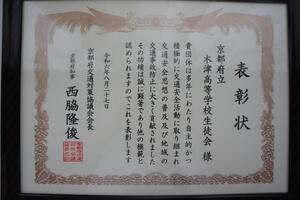 表彰状
京都府立
木津高等学校生徒会 様
貴団体は多年にわたり自主的かつ
積極的に交通安全活動に取り組まれ
交通安全思想の普及及び地域の
交通事故防止に大きく貢献されました
その功績は誠に顕著であり他の模範と
認められますのでこれを表彰します
令和六年八月二十七日
京都府交通対策協議会会長
京都府知事
西脇隆俊